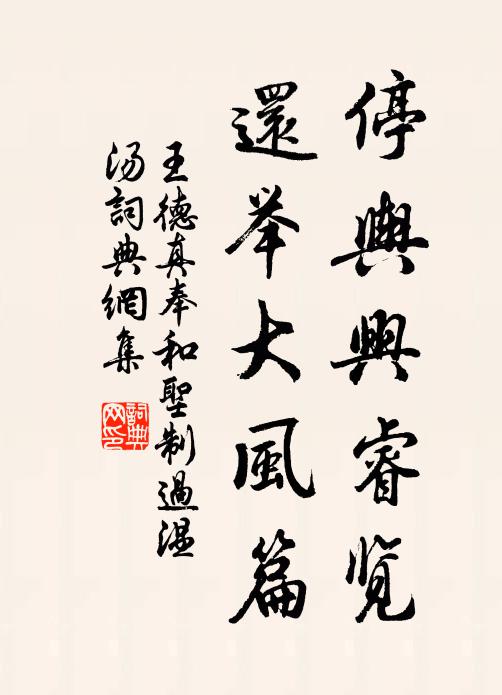 停輿興睿览
還举大風篇
王德真奉和聖制過温
汤詞典網集
詞典网印